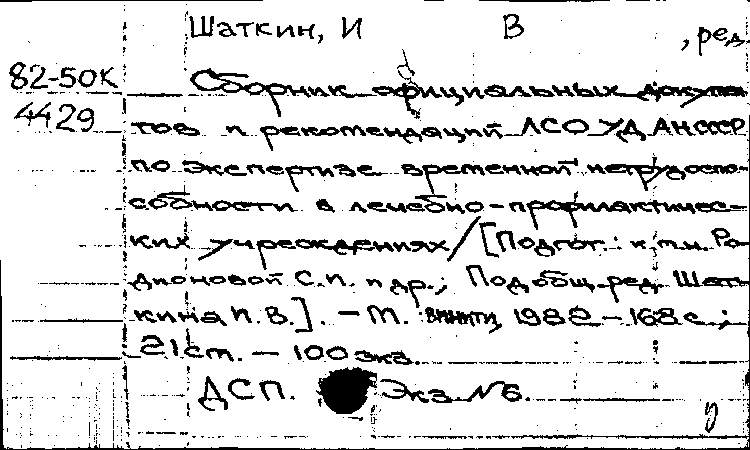 Шаткин, И В , ред.
82-50К Сборник официальных докумен
4429 тов и рекомендаций ЛСО УД АН СССР
по экспертизе временной нетрудоспо-
собности в лечебно-профилактичес-
ких учреждениях/[Подгот.: к.м.н. Ро-
дионовой С.П. и др.; Под общ. ред. Шат-
кина И.В.]. – М. ВИНИТИ, 1982 – 168 с.;
21 см. – 100 экз.
ДСП. Экз. №6.